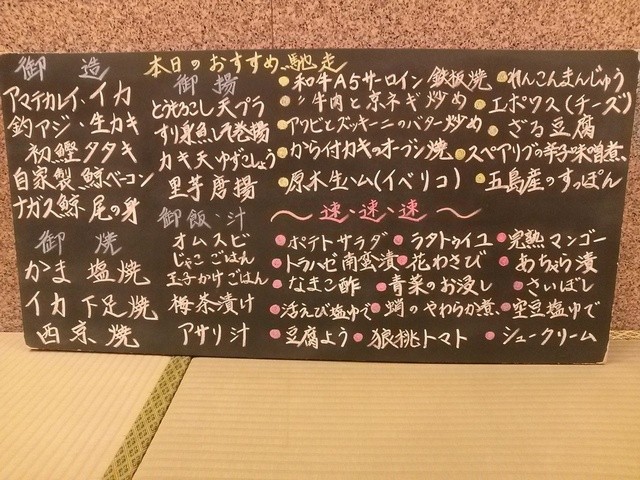 本日のおすすめ馳走
御造
アマテカレイ・イカ
釣アジ・生カキ
初鰹タタキ
自家製鯨ベーコン
ナガス鯨尾の身
御焼
かま塩焼
イカ下足焼
西京焼
御揚
とうもろこし天プラ
すり身魚し巻揚
カキ天ゆずこしょう
里芋唐揚
御飯・汁
オムスビ
じゃこごはん
玉子かけごはん
梅茶漬け
アサリ汁
和牛A5サーロイン鉄板焼
〃牛肉と京ネギ炒め
アワビとズッキーニのバター炒め
から付カキのオーブン焼
原木生ハム(イベリコ)
れんこんまんじゅう
エポワス(チーズ)
ざる豆腐
スペアリブの辛子味噌煮
五島産のすっぽん
〜速・速・速〜
ポテトサラダ
ラタトゥイユ
完熟マンゴー
トラハゼ南蛮漬
花わさび
あちゃら漬
なまこ酢
青菜のお浸し
さいぼし
浮えび塩ゆで
蛸のやわらか煮
空豆塩ゆで
豆腐よう
狼桃トマト
シュークリーム